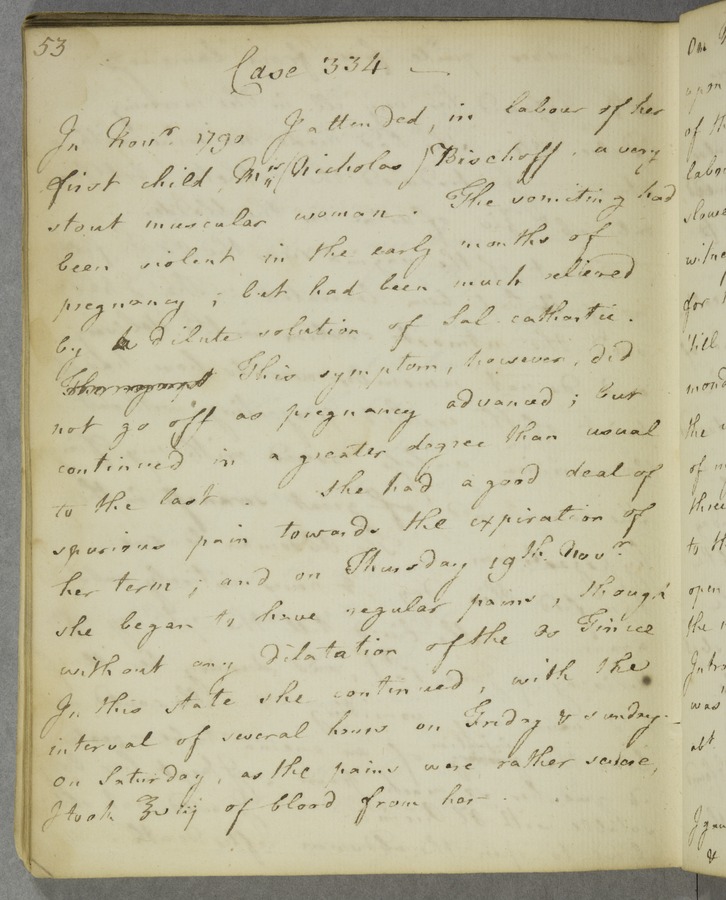 53
Case 334 —
In Novr. 1790 I attended, in labour of her
first child, Mrs (Nicholas) Bischoff, a very
stout muscular woman. The vomiting had
been violent in the early months of
pregnancy; but had been much relieved
by a dilute solution of Sal. cathartic.
This symptom, however, did
not go off as pregnancy advanced; but
continued in a greater degree than usual
to the last. She had a good deal of
spurious pain towards the expiration of
her term; and on Thursday 19th Novr.
she began to have regular pains, though
without any dilatation of the Os Tincæ
In this state she continued, with the
interval of several hours on Friday & Sunday.
On Saturday, as the pains were rather severe,
I took ℥ of blood from her.